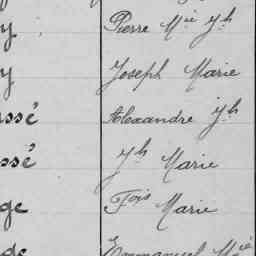 y Pierre Mie Jh
y Joseph Marie
ssé Alexandre Jh
ssé Jh Marie
ge Fois Marie
ge Emmanuel Mie